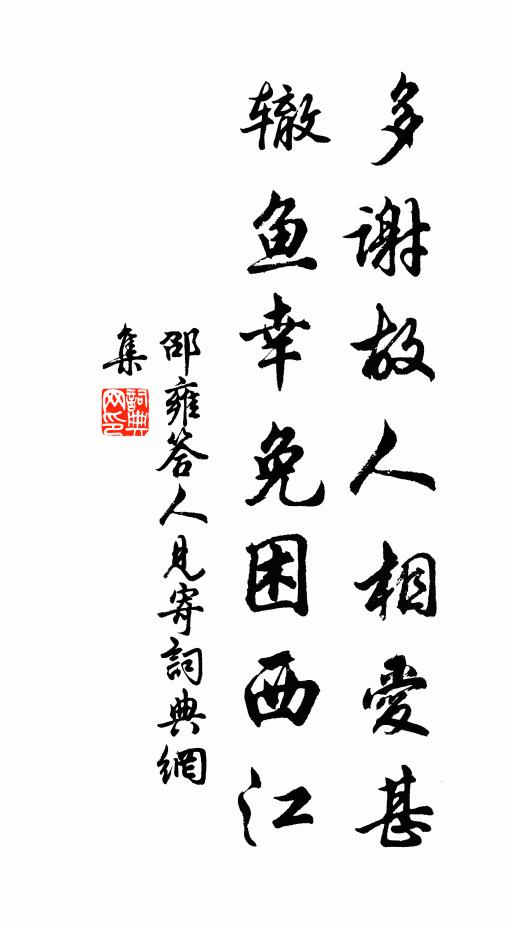 多谢故人相愛甚
辙鱼幸免困西江
邵雍答人見寄詞典網
集
詞典
网印